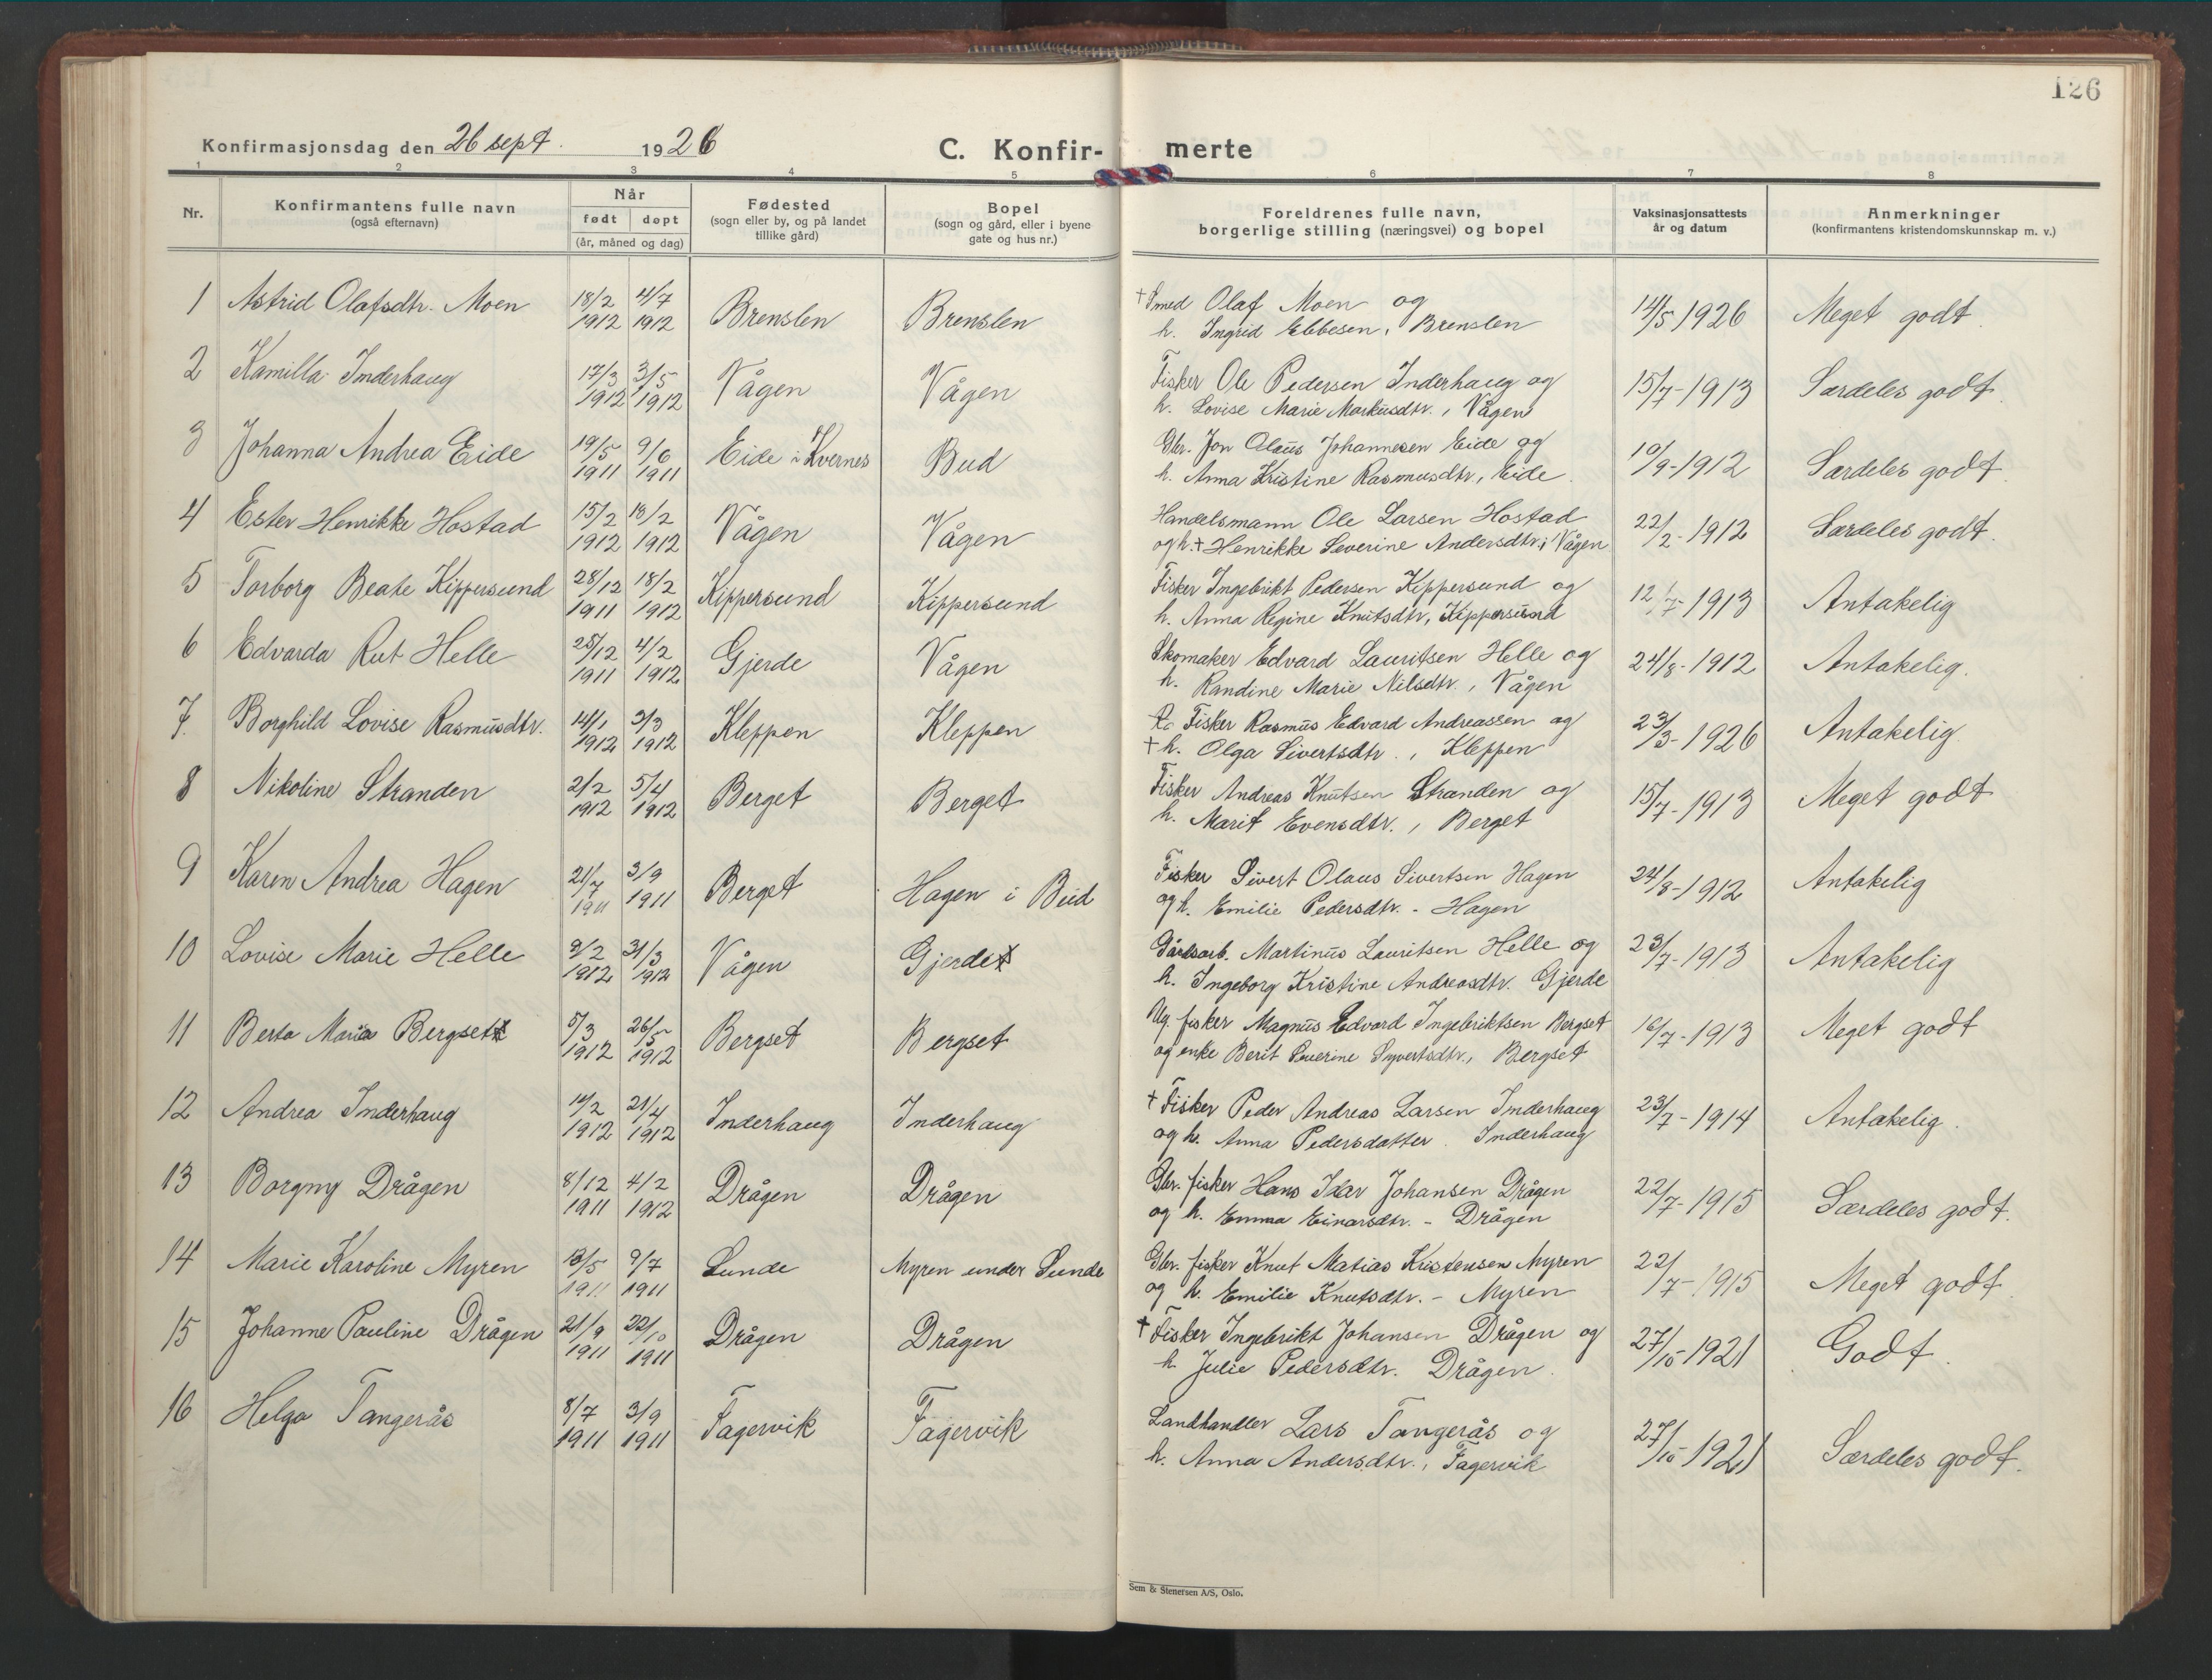 126
Konfirmasjonsdag den 26 sept. 1926
C. Konfir- merte
1 2 3 4 5 6 7 8
Nr.
Konfirmantens fulle navn
(også efternavn)
Når
født døpt
(år, måned og dag)
Fødested
(sogn eller by, og på landet
tillike gård)
Bopel
(sogn og gård, eller i byene
gate og hus nr.)
Foreldrenes fulle navn,
borgerlige stilling (næringsvei) og bopel
Vaksinasjonsattests
år og datum
Anmerkninger
(konfirmantens kristendomskunnskap m. v.)
1 Astrid Olafsdtr. Moen 18/2 1912 4/7 1912 Brenslen Brenslen † Smed Olaf Moen og
h. Ingrid Ebbesen, Brenslen 14/5 1926 Meget godt.
2 Kamilla Inderhaug 17/3 1912 3/5 1912 Vågen Vågen Fisker Ole Pedersen Inderhaug og
h. Lovise Marie Markusdtr., Vågen 15/7-1913 Særdeles godt.
3 Johanna Andrea Eide 19/5 1911 9/6 1911 Eide i Kvernes Bud Gbr. Jon Olaus Johannesen Eide og
h. Anna Kristine Rasmusdtr., Eide. 10/9-1912 Særdeles godt.
4 Ester Henrikke Hostad 15/2 1912 18/2 1912 Vågen Vågen Handelsmann Ole Larsen Hostad
og h. † Henrikke Severine Andersdtr. i Vågen 22/2-1912 Særdeles godt.
5 Torborg Beate Kippersund 28/12 1911 18/2 1912 Kippersund Kippersund Fisker Ingebrikt Pedersen Kippersund og
h. Anna Regine Knutsdtr, Kippersund 12/7-1913 Antakelig
6 Edvarda Rut Helle 25/12 1911 4/2 1912 Gjerde Vågen Skomaker Edvard Lauritsen Helle og
h. Randine Marie Nilsdtr., Vågen 24/8-1912 Antakelig.
7. Borghild Lovise Rasmusdtr. 14/1 1912 3/3 1912 Kleppen Kleppen Fisker Rasmus Edvard Andreassen og
† h. Olga Sivertsdtr., Kleppen 23/3-1926 Antakelig.
8 Nikoline Stranden 2/2 1912 5/4 1912 Berget Berget Fisker Andreas Knutsen Stranden og
h. Marit Evensdtr., Berget 15/7-1913 Meget godt
9 Karen Andrea Hagen 21/7 1911 3/9 1911 Berget Hagen i Bud Fisker Sivert Olaus Sivertsen Hagen
og h. Emilie Pedersdtr. - Hagen 24/8-1912 Antakelig
10 Lovise Marie Helle 9/2 1912 31/3 1912 Vågen Gjerde Gårdsarb. Martinus Lauritsen Helle og
h. Ingeborg Kristine Andreasdtr. Gjerde 23/7-1913 Antakelig
11 Berta Maria Bergset 5/3 1912 26/5 1912 Bergset Bergset Ug. fisker Magnus Edvard Ingebriktsen Bergset
og enke Berit Severine Syvertsdtr., Bergset 16/7-1913 Meget godt
12 Andrea Inderhaug 1912 21/4 1912 Inderhaug Inderhaug † Fisker Peder Andreas Larsen Inderhaug
og h. Anna Pedersdatter. Inderhaug 23/7-1914 Antakelig.
13 Borgny Drågen 8/12 1911 4/2 1912 Drågen Drågen Gbr. fisker Hans Idar Johansen Drågen
og h. Emma Einarsdtr. - Drågen 22/7-1915 Særdeles godt.
14 Marie Karoline Myren 13/5 1911 9/7 1911 Sunde Myren under Sunde Gbr. fisker Knut Matias Kristensen Myren
og h. Emilie Knutsdtr. - Myren 22/7-1915 Meget godt.
15 Johanne Pauline Drågen 21/9 1911 22/10 1911 Drågen Drågen † Fisker Ingebrikt Johansen Drågen og
h. Julie Pedersdtr. Drågen. 27/10-1921 Godt.
16 Helga Tangerås 8/7 1911 3/9 1911 Fagervik Fagervik Landhandler Lars Tangerås og
h. Anna Andersdtr., Fagervik 27/10-1921 Særdeles godt.
Sem & Stenersen A/S, Oslo.